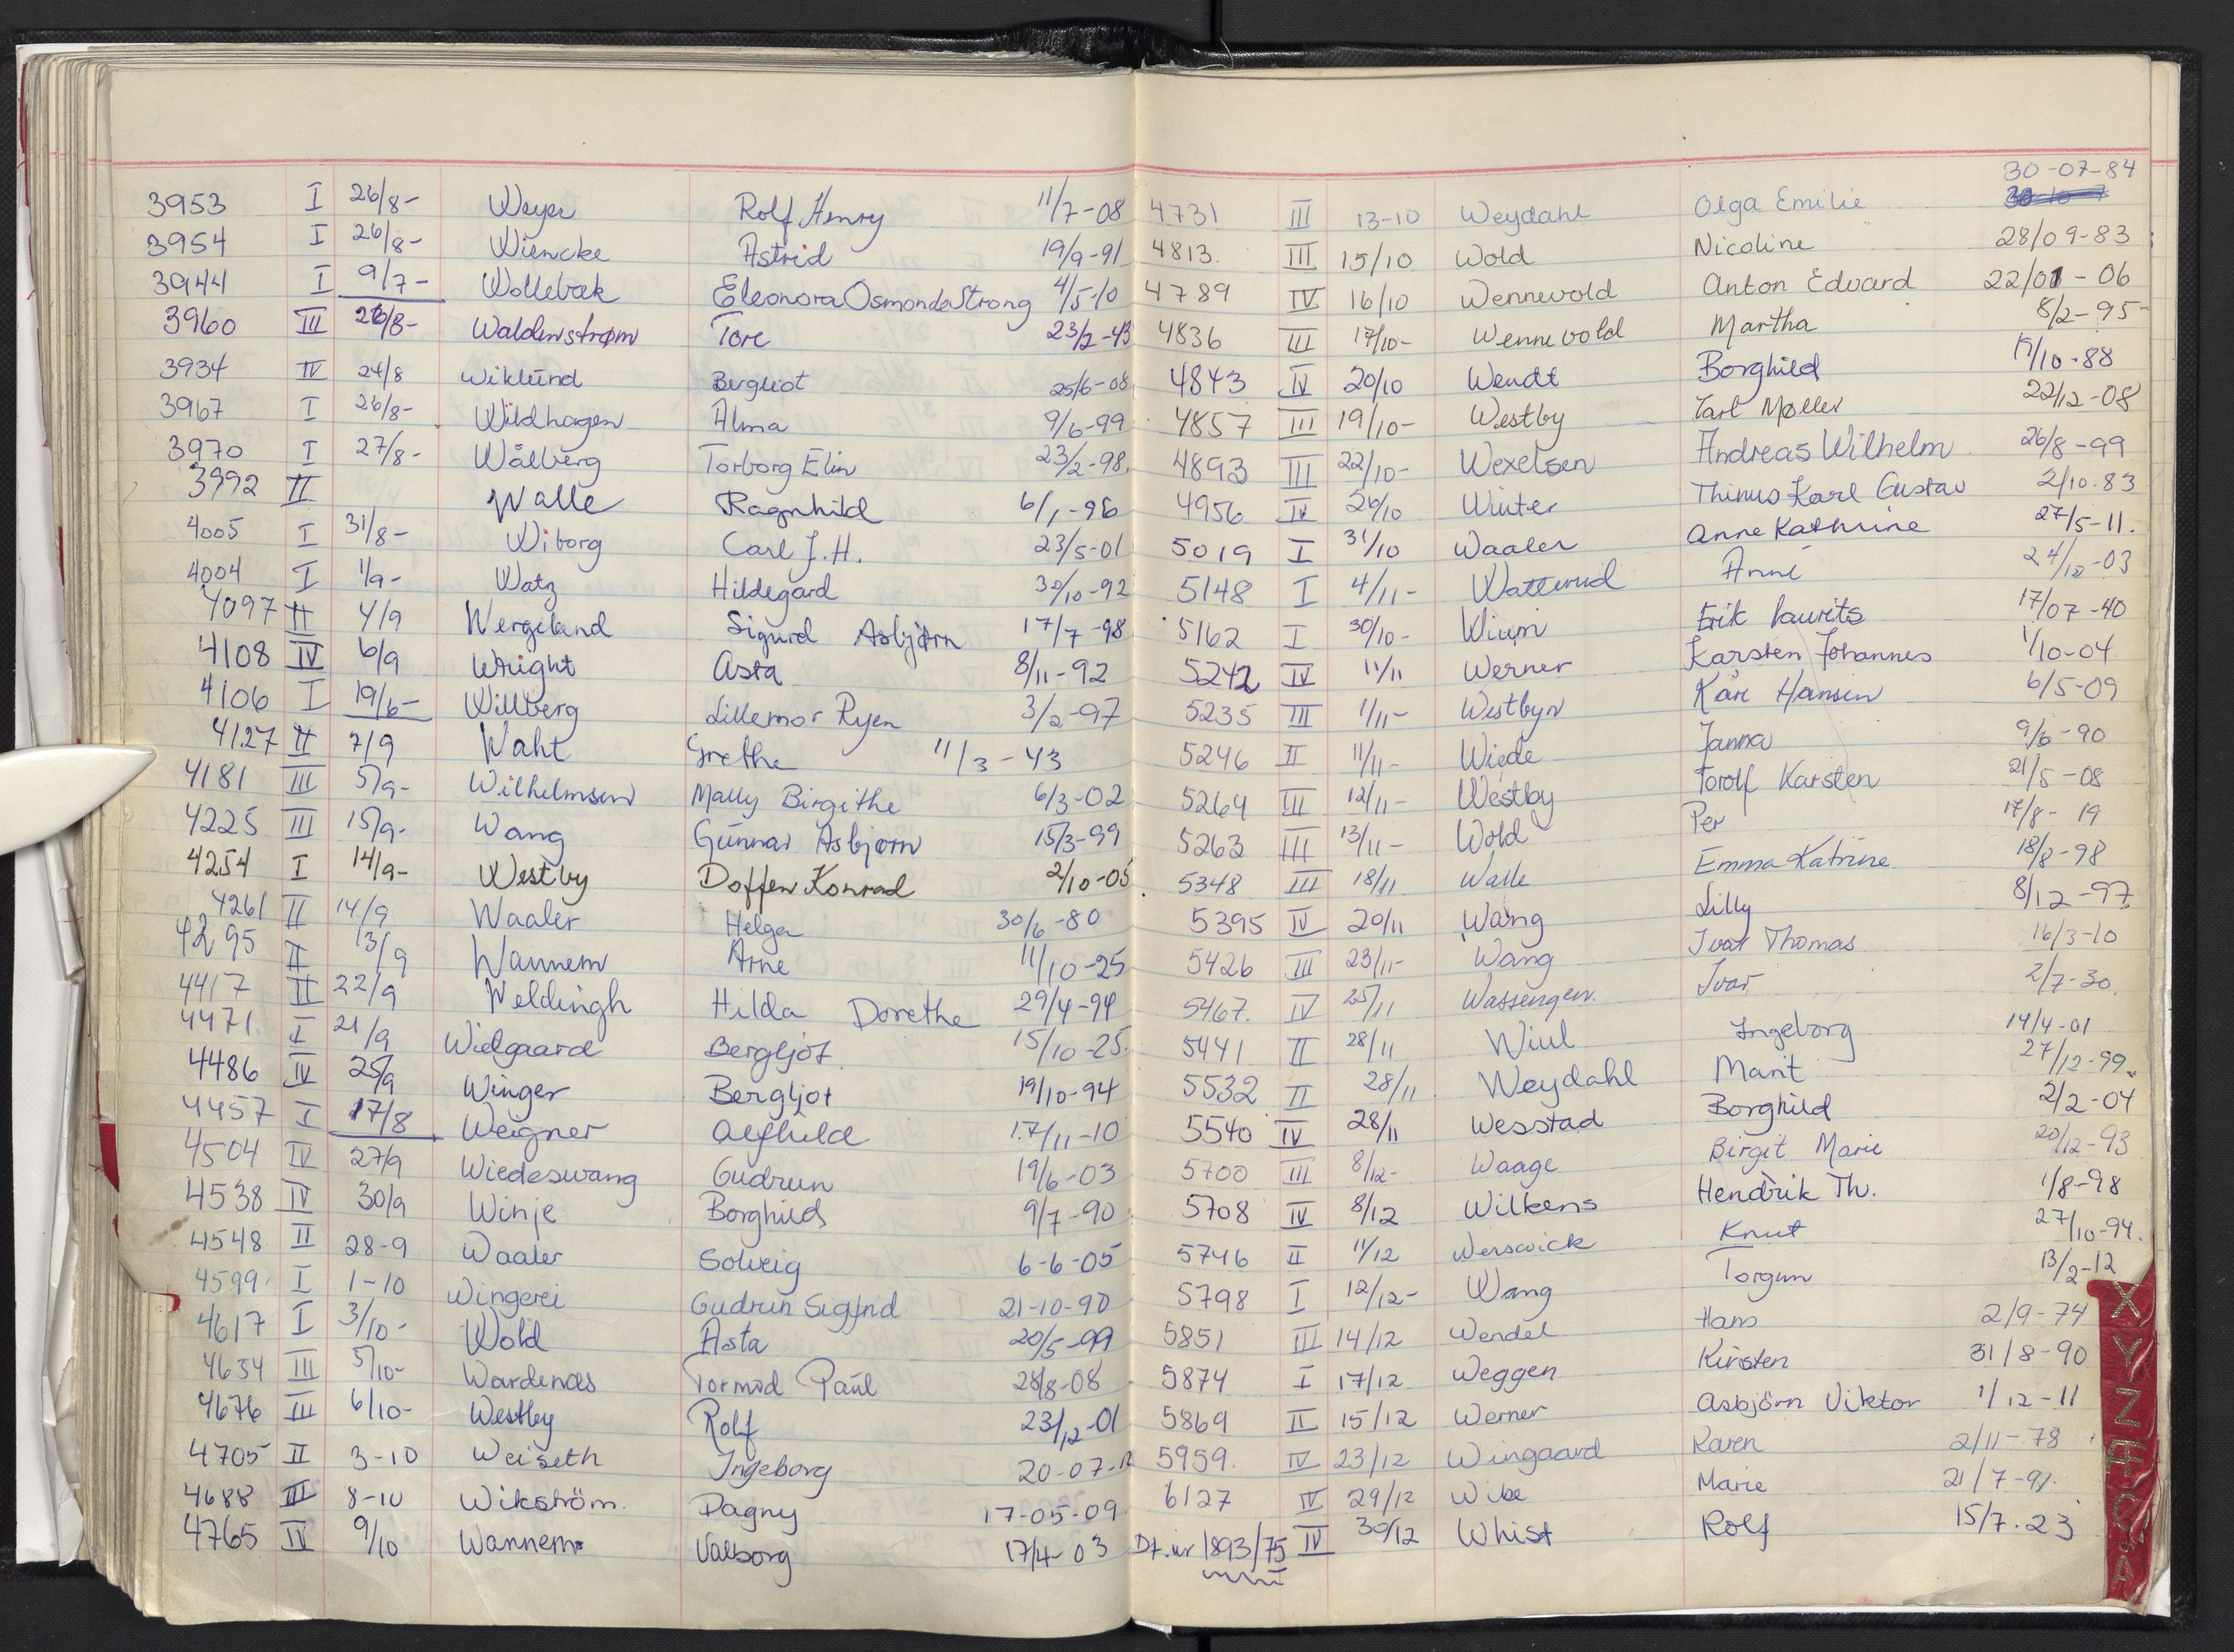 3953 I 26/8- Weyer Rolf Henry 11/7-08
3954 I 26/8- Wiencke Astrid 19/9-91
3944 I 9/7- Wollebæk Eleonora Osmonda Strong 4/5-10
3960 III 26/8- Waldenstrøm Tore 23/2-43
3934 IV 24/8 Wiklund Bergliot 25/6-08
3967 I 26/8- Wildhagen Alma 9/6-99
3970 I 27/8- Wålberg Torborg Elin 23/2-98.
3992 II Walle Ragnhild 6/1-96
4005 I 31/8- Wiborg Carl J.H. 23/5-01
4004 I 1/9- Watz Hildegard 30/10-92
4097 II 4/9 Wergeland Sigurd Asbjørn 17/7-98
4108 IV 6/9 Wright Asta 8/11-92
4106 I 19/6- Willberg Lillemor Ryen 3/2-97
4127 II 7/9 Waht Grethe 11/3-43
4181 III 5/9- Wilhelmsen Mally Birgithe 6/3-02
4225 III 15/9- Wang Gunnar Asbjørn 15/3-99
4254 I 14/9- Westby Doffen Konrad 2/10-05
4261 II 14/9 Waaler Helga 30/6-80
4295 II 13/9 Wannem Arne 11/10-25
4417 II 22/9 Weldingh Hilda Dorethe 29/4-94
4471 I 21/9 Wielgaard Bergljot 15/10-25.
4486 IV 25/9 Winger Bergljot 19/10-94
4457 I 17/8 Weigner Alfhild 17/11-10
4504 IV 27/9 Wiedeswang Gudrun 19/6-03
4538 IV 30/9 Winje Borghild 9/7-90
4548 II 28-9 Waaler Solveig 6-6-05
4599 I 1-10 Wingerei Gudrun Sigfrid 21-10-90
4617 I 3/10- Wold Asta 20/5-99
4634 III 5/10- Wardenæs Tormod Paul 28/8-08
4676 III 6/10- Westby Rolf 23/12-01
4705 II 3-10 Weiseth Ingeborg 20-07-
4688 III 8-10 Wikström. Dagny 17-05-09
4765 IV 9/10 Wannem Valborg 17/4-03
30-07-84
4731 III 13-10 Weydahl Olga Emilie
4813. III 15/10 Wold Nicoline 28/09-83
4789 IV 16/10 Wennevold Anton Edvard 22/01-06
4836 III 17/10- Wennevold Martha 8/2-95
4843 IV 20/10 Wendt Borghild /10-88
4857 III 19/10- Westby Carl Møller 22/12-08
4893 III 22/10- Wexelsen Andreas Wilhelm 26/8-99
4956 IV 26/10 Winter Thinus Karl Gustav 2/10.83
5019 I 31/10 Waaler Anne Kathrine 27/5-11.
5148 I 4/11- Watterud Anne 24/10-03
5162 I 30/10- Wium Erik Laurits 17/07-40
5242 IV 11/11 Werner Karsten Johannes 1/10-04
5235 III 1/11- Westbyn Kåre Hansen 6/5-09
5246 II 11/11- Wiede Janna 9/6-90
5264 III 12/11- Westby Torolf Karsten 21/5-08
5263 III 13/11- Wold Per 17/8-19
5348 III 18/11 Walle Emma Katrine 18/8-98
5395 IV 20/11 Wang Lilly 8/12-97
5426 III 23/11- Wang Ivar Thomas 16/3-10
5467. IV 25/11 Wassengen. Ivar 2/7-30.
5441 II 28/11 Wiul Ingeborg 14/4-01
5532 II 28/11 Weydahl Marit 27/12-99.
5540 IV 28/11 Wesstad Borghild 2/2-04
5700 III 8/12- Waage Birgit Marie 20/12-93
5708 IV 8/12 Wilkens Hendrik Th. 1/8-98
5746 II 11/12 Werswick Knut 27/10-94.
5798 I 12/12- Wang Torgun 13/2-12
5851 III 14/12 Wendel Hans 2/9-74
5874 I 17/12 Weggen Kirsten 31/8-90
5869 II 15/12 Werner Asbjörn Viktor 1/12-11
5959. IV 23/12 Wingaard Karen 2/11-78
6127 IV 29/12 Wibe Marie 21/7-91.
Dt.nr 1893/75 IV 30/12 Whist Rolf 15/7.23
X
Y
Z
Æ
Ø